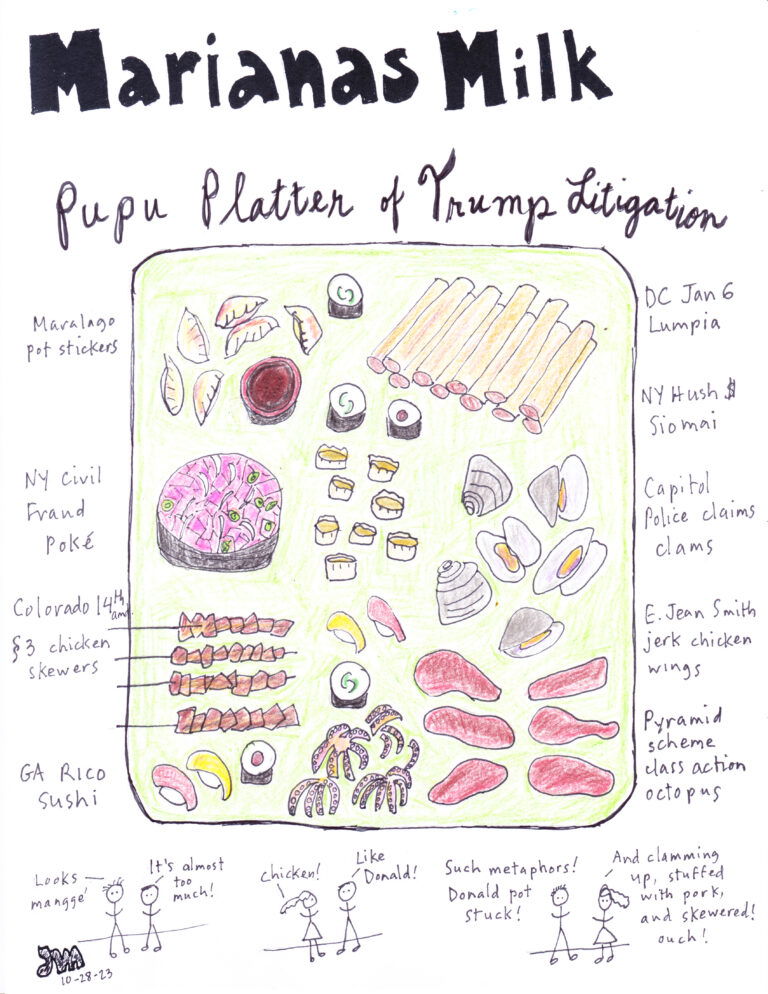 Marianas Milk
Pupu Platter of Trump Litigation
Maralago
pot stickers
DC Jan 6
Lumpia
NY Hush $
Siomai
NY Civil
Fraud
Poké
Capitol
Police claims
clams
Colorado 14th am.
§3 chicken
skewers
E. Jean Smith
jerk chicken
wings
GA Rico
Sushi
Pyramid
scheme
class action
octopus
Looks
manggé
It's almost
too
much!
Chicken!
Like
Donald!
Such metaphors!
Donald pot
stuck!
And clamming
up, stuffed
with pork,
and skewered!
ouch!
10-28-23